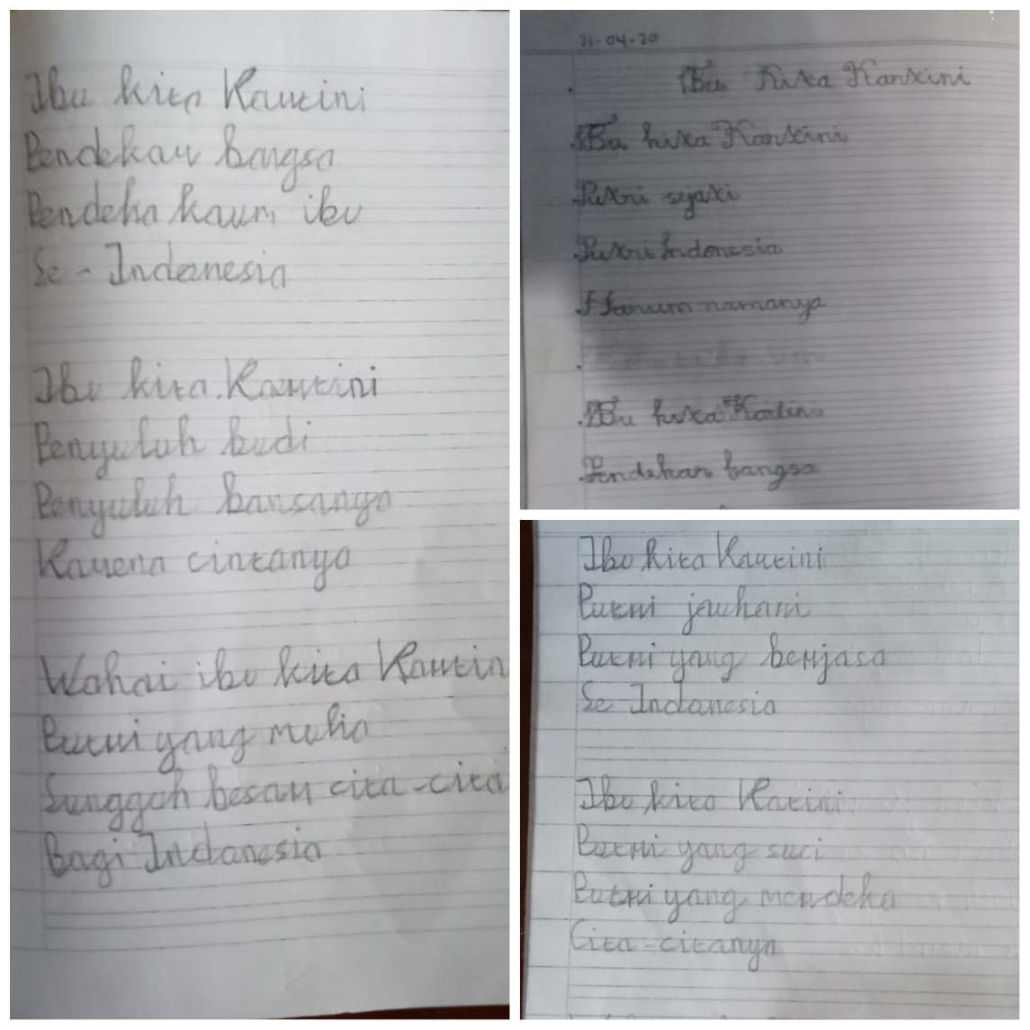 Ibu kita Kartini
Pendekar bangsa
Pendeka kaum ibu
Se - Indonesia
Ibu kita Kartini
Penyuluh budi
Penyuluh bansanya
Karena cintanya
Wahai ibu kita Kartin
Putri yang mulia
Sungguh besar cita-cita
Bagi Indonesia
21-04-20
Ibu Kita Kartini
Ibu kita Kartini
Putri sejati
Putri Indonesia
Harum namanya
Ibu kita Kartini
Pendekar bangsa
Ibu kita Kartini
Putri jauhari
Putri yang berjasa
Se Indonesia
Ibu kita Kartini
Putri yang suci
Putri yang merdeka
Cita-citanya